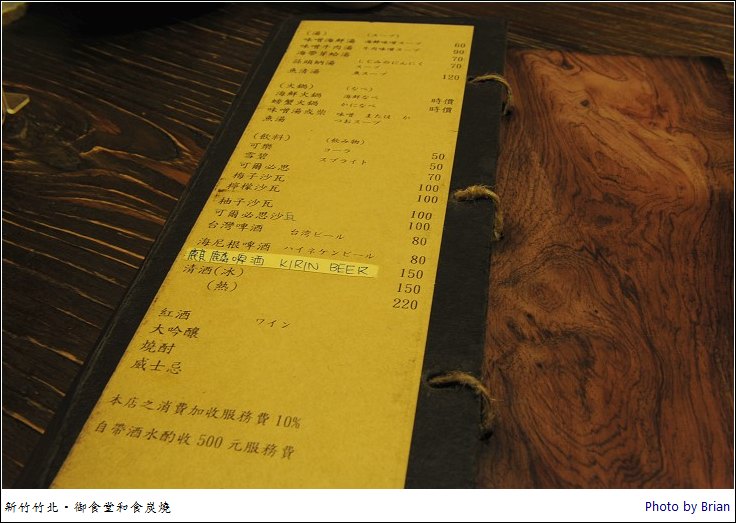 (湯) (スープ)
味噌海鮮湯 海鮮味噌スープ 60
味噌牛肉湯 牛肉味噌スープ 90
海帶芽蛤湯 70
蒜頭蜊湯 しじみのにんにくスープ 70
魚清湯 魚スープ 120
(火鍋) (なべ)
海鮮火鍋 海鮮なべ 時價
螃蟹火鍋 かになべ 時價
味噌湯或柴魚湯 味噌 または かつおスープ
(飲料) (飲み物)
可樂 コーラ 50
雪碧 スプライト 50
可爾必思 70
梅子沙瓦 100
檸檬沙瓦 100
柚子沙瓦 100
可爾必思沙瓦 100
台灣啤酒 台湾ビール 80
海尼根啤酒 ハイネケンビール 80
麒麟啤酒 KIRIN BEER 150
清酒(冰) 150
(熱) 220
紅酒 ワイン
大吟釀
燒酎
威士忌
本店之消費加收服務費10%
自帶酒水酌收500元服務費
新竹竹北‧御食堂和食炭燒
Photo by Brian